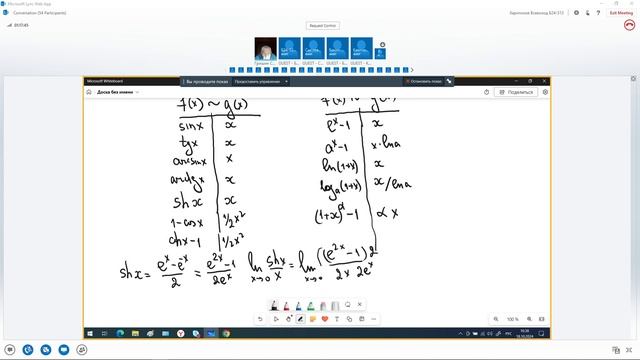 Microsoft Lync Web App
Conversation (54 Participants)
Exit Meeting
Request Control
Microsoft Whiteboard
Вы проводите показ
Предоставить управление
Остановить показ
Доска без имени
Поделиться
f(x) ~ g(x)
sin x | x
tg x | x
arcsin x | x
arctg x | x
sh x | x
1-cos x | 1/2 x²
ch x -1 | 1/2 x²
e^x -1 | x
a^x -1 | x·ln a
ln(1+x) | x
log_a(1+x) | x/ln a
(1+x)^α -1 | αx
sh x = (e^x - e^-x)/2 = (e^2x -1)/(2e^x) lim x→0 sh x/x = lim x→0 ((e^2x -1) 2)/(2x 2e^x)
100 %
РУС
16:38
18.10.2024